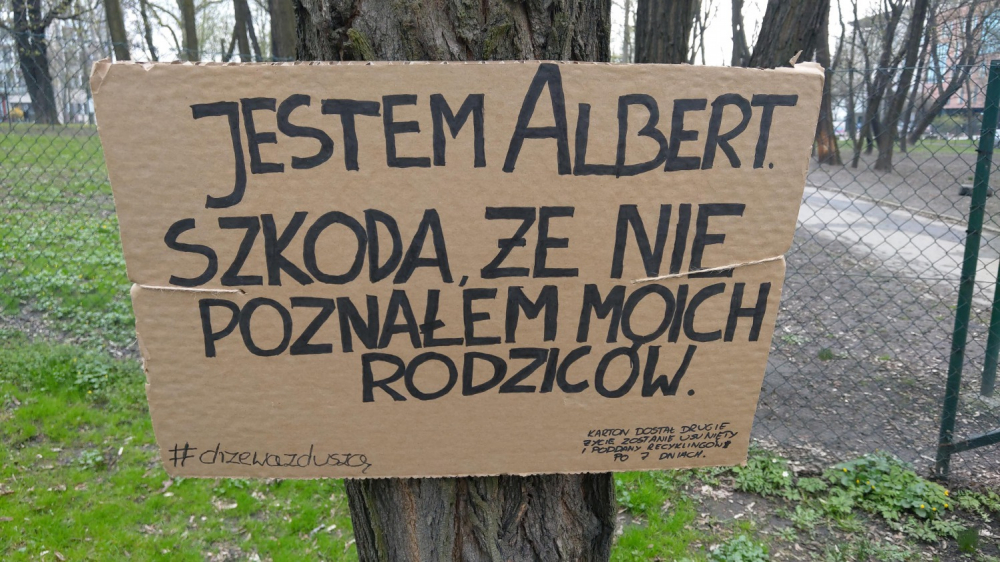 JESTEM ALBERT.
SZKODA, ŻE NIE
POZNAŁEM MOICH
RODZICÓW.
#drzewazduszą
KARTON DOSTAŁ DRUGIE
ŻYCIE ZOSTANIE USUNIĘTY
I PODDANY RECYKLINGOWI
PO 7 DNIACH.